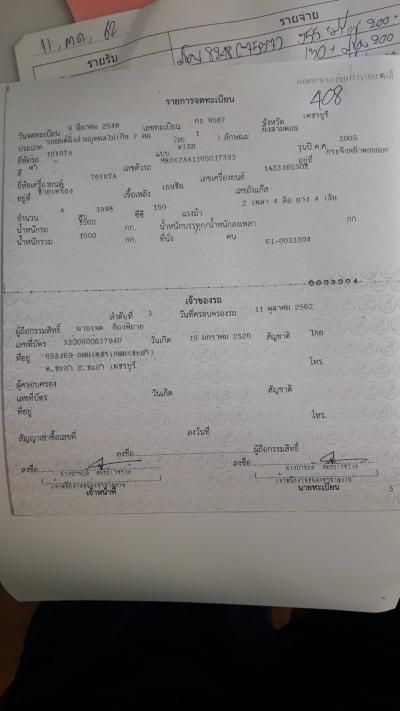 11 ต.ค. 62
รายรับ
รายจ่าย
200
ออกแทนฉบับชำรุด
408
รายการจดทะเบียน
วันจดทะเบียน 9 มีนาคม 2548 เลขทะเบียน กธ 9587 จังหวัด เพชรบุรี
ประเภท รถยนต์นั่งส่วนบุคคลไม่เกิน 7 คน (รย. 1 ) ลักษณะ นั่งสามตอน
ยี่ห้อรถ TOYOTA แบบ WISH รุ่นปี ค.ศ. 2005
สี เทา เลขตัวรถ MR0X2AA1105017333 อยู่ที่ กระจังหน้าตอนนอก
ยี่ห้อเครื่องยนต์ TOYOTA เลขเครื่องยนต์ 1AZ3165302
อยู่ที่ ซ้ายเครื่อง เชื้อเพลิง เบนซิน เลขถังแก๊ส
จำนวน 4 สูบ 1998 ซีซี 150 แรงม้า 2 เพลา 4 ล้อ ยาง 4 เส้น
น้ำหนักรถ 1500 กก. น้ำหนักบรรทุก/น้ำหนักลงเพลา กก.
น้ำหนักรวม 1500 กก. ที่นั่ง คน 61-0033304
0033304
เจ้าของรถ
ลำดับที่ 3 วันที่ครอบครองรถ 11 ตุลาคม 2562
ผู้ถือกรรมสิทธิ์ นายเจต
เลขที่บัตร 3300600637940 วันเกิด 19 มกราคม 2520 สัญชาติ ไทย
ที่อยู่ 653/69 ถนนเพชรเกษม(ชะอำ)
ต.ชะอำ อ.ชะอำ เพชรบุรี โทร.
ผู้ครอบครอง
เลขที่บัตร วันเกิด สัญชาติ
ที่อยู่ โทร.
สัญญาเช่าซื้อเลขที่ ลงวันที่
ลงชื่อ ผู้ถือกรรมสิทธิ์
ลงชื่อ ลงชื่อ
เจ้าหน้าที่ นายทะเบียน
5